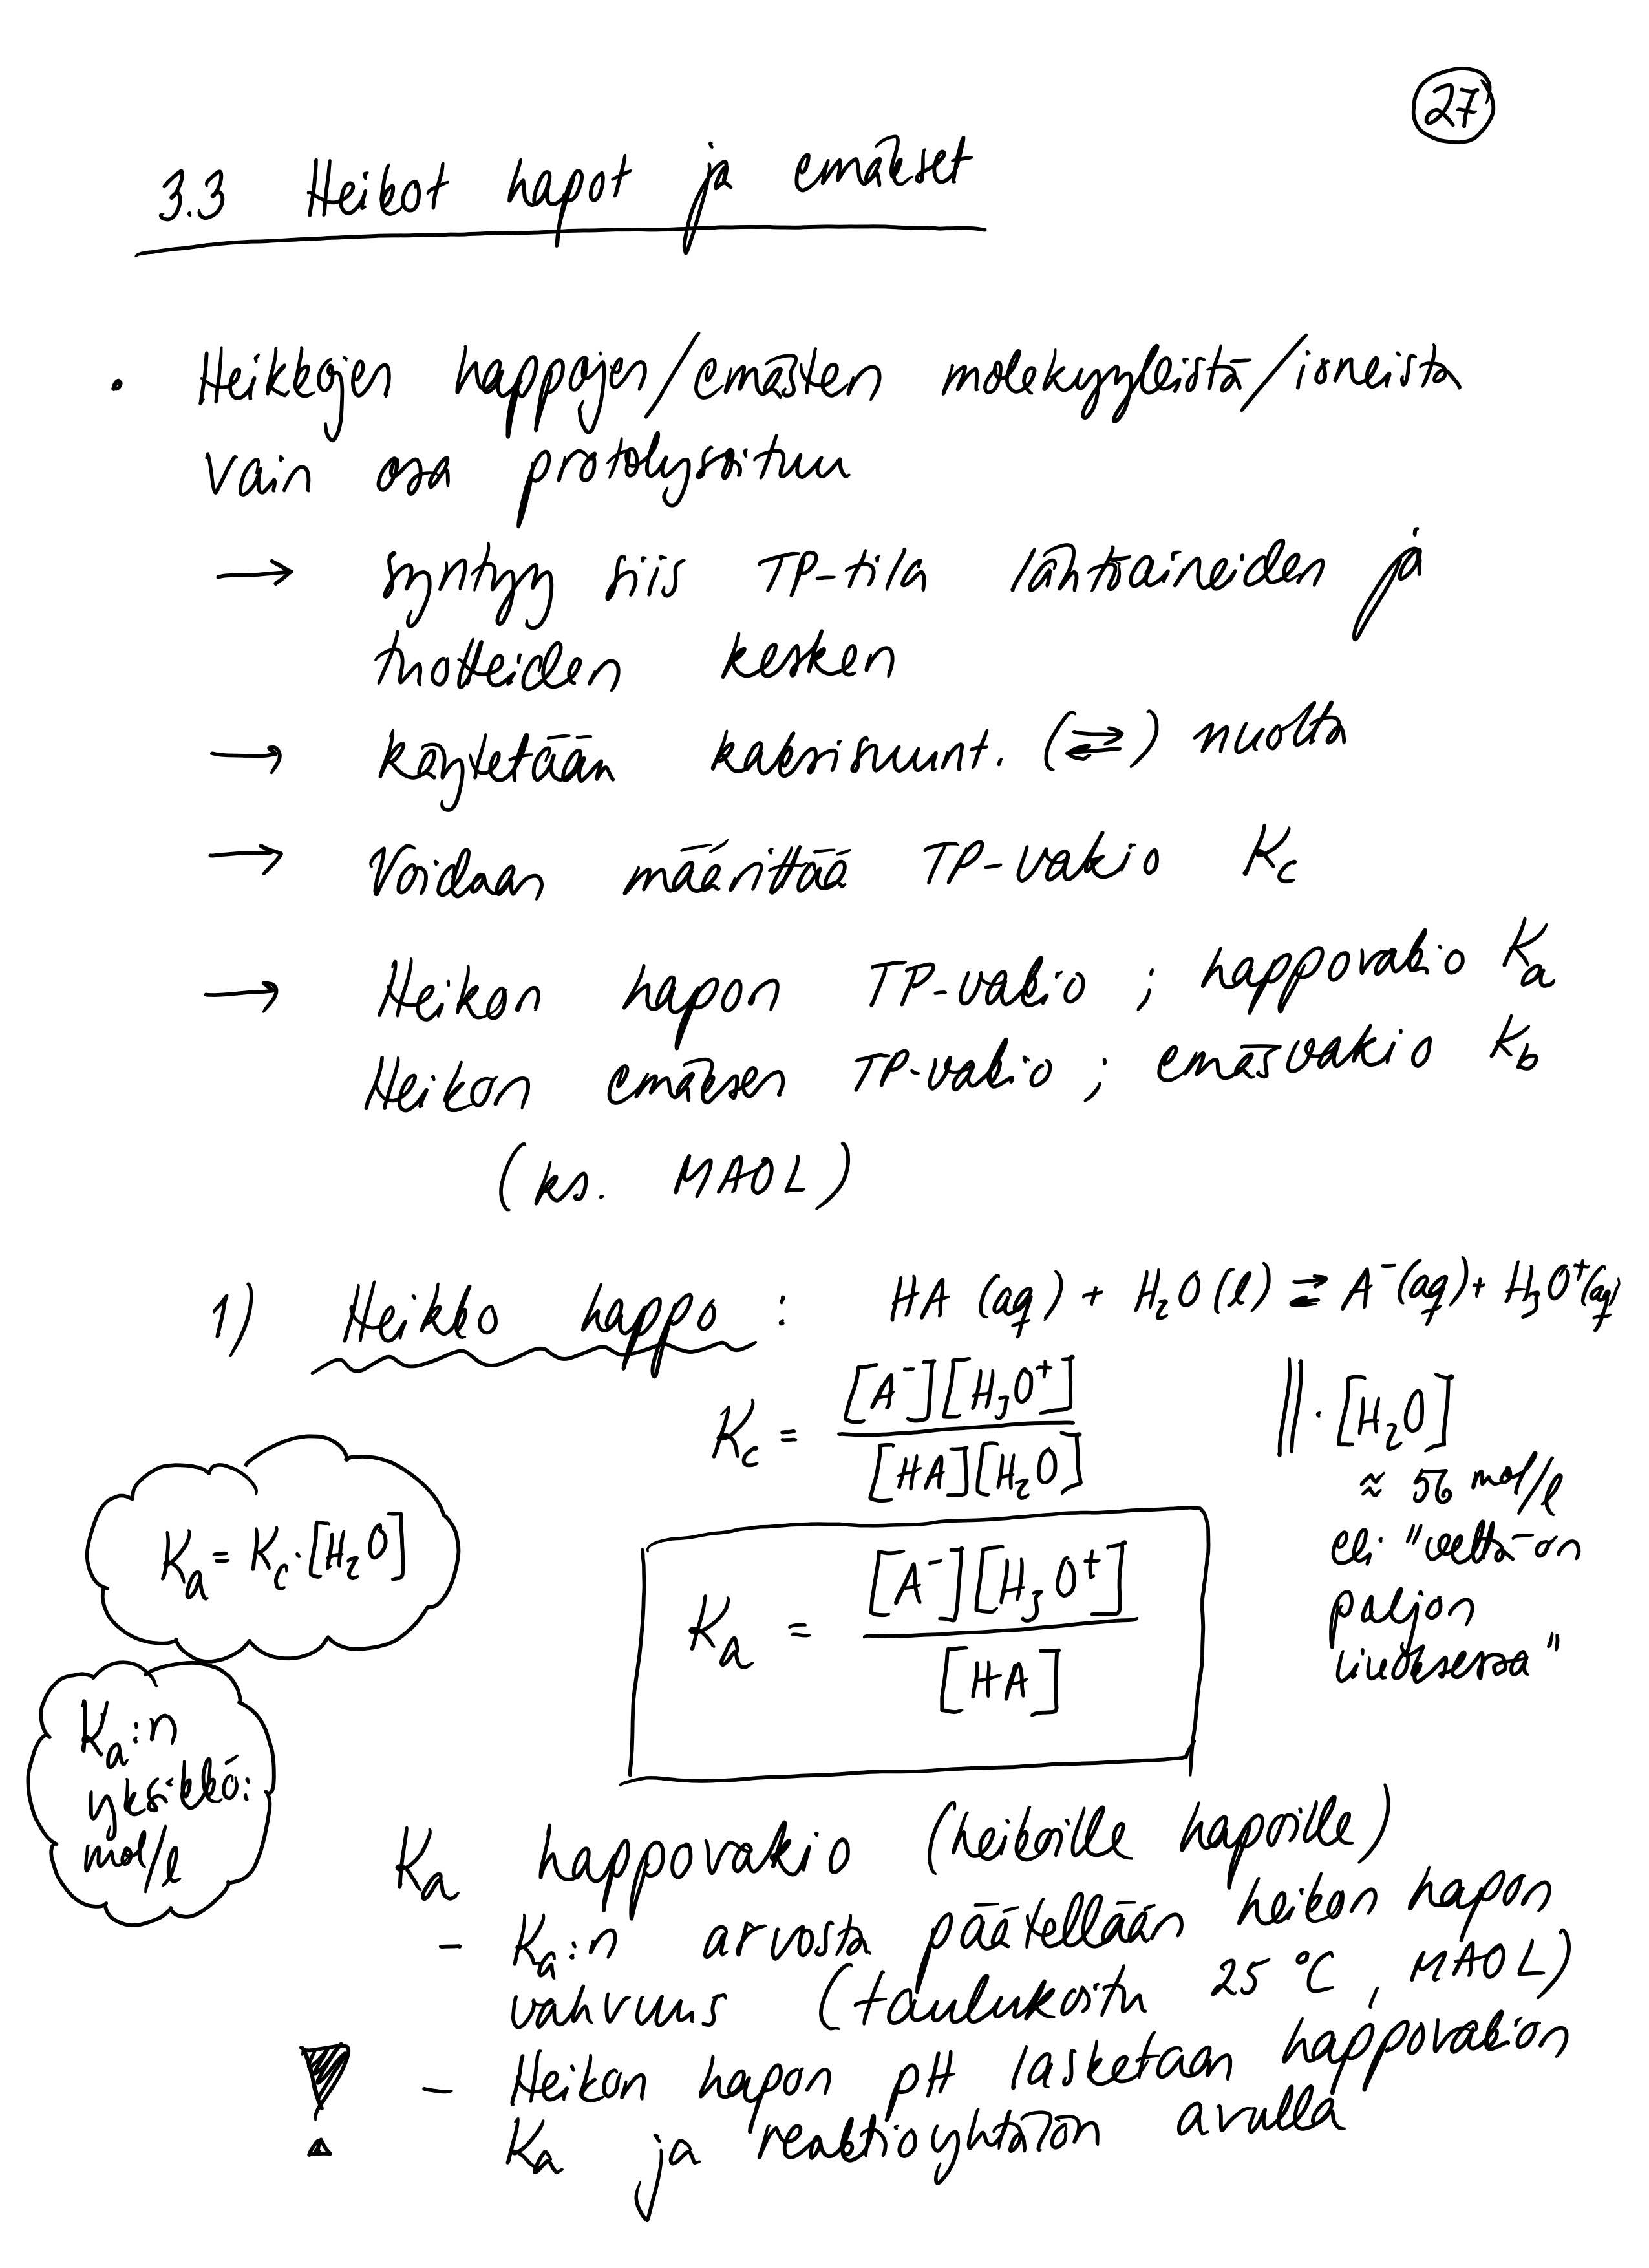 27
3.3 Heikot hapot ja emäkset
• Heikkojen happojen/emästen molekyyleistä/ioneista
vain osa protolysoituu
→ syntyy siis TP-tila lähtöaineiden ja
tuotteiden kesken
→ käytetään kaksisuunt. (⇄) nuolta
→ Voidaan määrittää TP-vakio Kc
→ Heikon hapon TP-vakio ; happovakio Ka
Heikon emäksen TP-vakio ; emäsvakio Kb
(ks. MAOL)
1) Heikko happo : HA (aq) + H₂O (l) ⇄ A⁻(aq) + H₃O⁺(aq)
Kc = [A⁻][H₃O⁺] / [HA][H₂O] || · [H₂O]
≈ 56 mol/l
eli "vettä on
paljon
liuoksessa"
Ka = Kc · [H₂O]
Ka = [A⁻][H₃O⁺] / [HA]
Ka:n
yksikkö:
mol/l
Ka happovakio (heikoille hapoille)
- Ka:n arvosta päätellään heikon hapon
vahvuus (taulukoitu 25 °C, MAOL)
! - Heikon hapon pH lasketaan happovakion
Ka ja reaktioyhtälön avulla